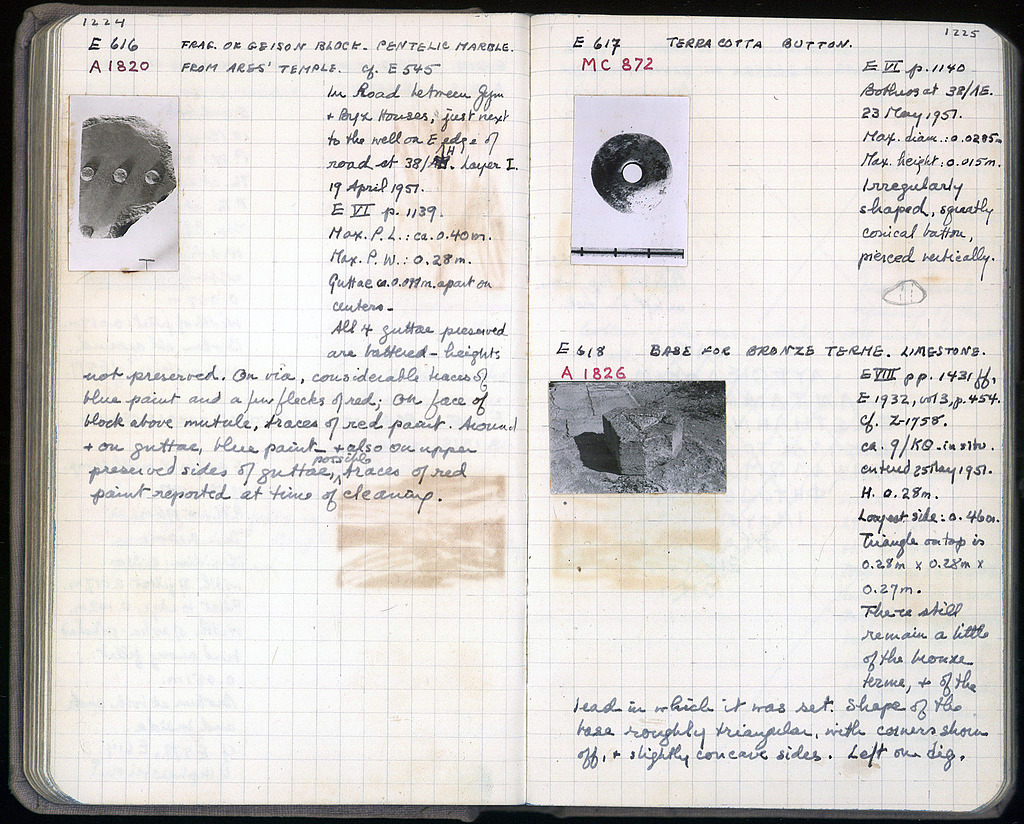 1224
E 616 FRAG. OF GEISON BLOCK. PENTELIC MARBLE.
A 1820 FROM ARES' TEMPLE. cf. E 545
In Road between Gym
+ Byz Houses, just next
to the well on E edge of
road at 38/ H. Layer I.
19 April 1951.
E VI p. 1139.
Max. P. L.: ca. 0.40m.
Max. P. W.: 0.28m.
Guttae ca. 0.097m. apart on
centers.
All 4 guttae preserved
are battered - heights
not preserved. On via, considerable traces of
blue paint and a few flecks of red; On face of
block above mutule, traces of red paint. Around
+ on guttae, blue paint - + also on upper
preserved sides of guttae, possible traces of red
paint reported at time of cleaning.
1225
E 617 TERRA COTTA BUTTON.
MC 872
E VI p. 1140
Bothros at 38/ΛΕ.
23 May 1951.
Max. diam.: 0.0285m
Max. height: 0.015m.
Irregularly
shaped, squatly
conical button,
pierced vertically.
E 618 BASE FOR BRONZE TERME. LIMESTONE.
A 1826
E VIII pp. 1431 ff,
E 1932, vol 3, p. 454.
Cf. Z-1758.
ca. 9/ΚΘ. in situ.
entered 25 May 1951.
H. 0.28m.
Longest side: 0.46m.
Triangle on top is
0.28m x 0.28m x
0.27m.
There still
remain a little
of the bronze
terme, + of the
lead in which it was set. Shape of the
base roughly triangular, with corners shorn
off, + slightly concave sides. Left on dig.